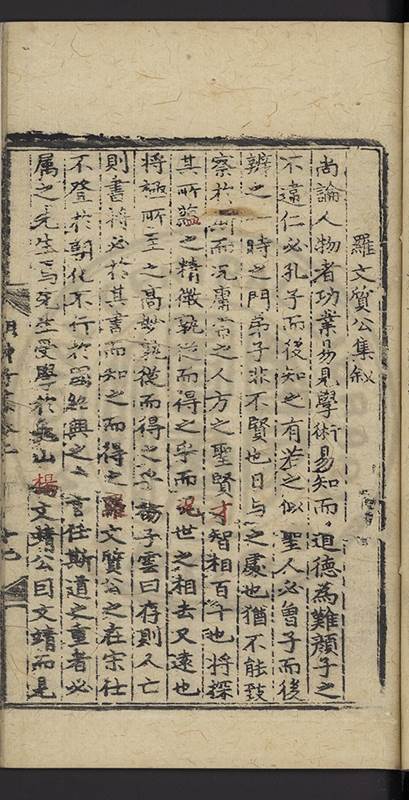 羅文質公集叙
尚論人物者功業易見學術易知而道德為難顔子之
不遠仁必孔子而後知之有若之似聖人必曾子而後
辨之一時之門弟子非不賢也日与之處也猶不能致
察於而况庸言之人方之聖賢才智相百千也将深
其所蘊之精微孰從而得之乎而况世之相去又遠也
将極所至之高妙孰從而得之乎揚子雲曰存則人亡
則書将必於其書而知之而得之羅文質公之在宋仕
不登於朝化不行於之言任斯道之重者必
属之先生焉先生受學於龜山楊文靖公曰文靖而是